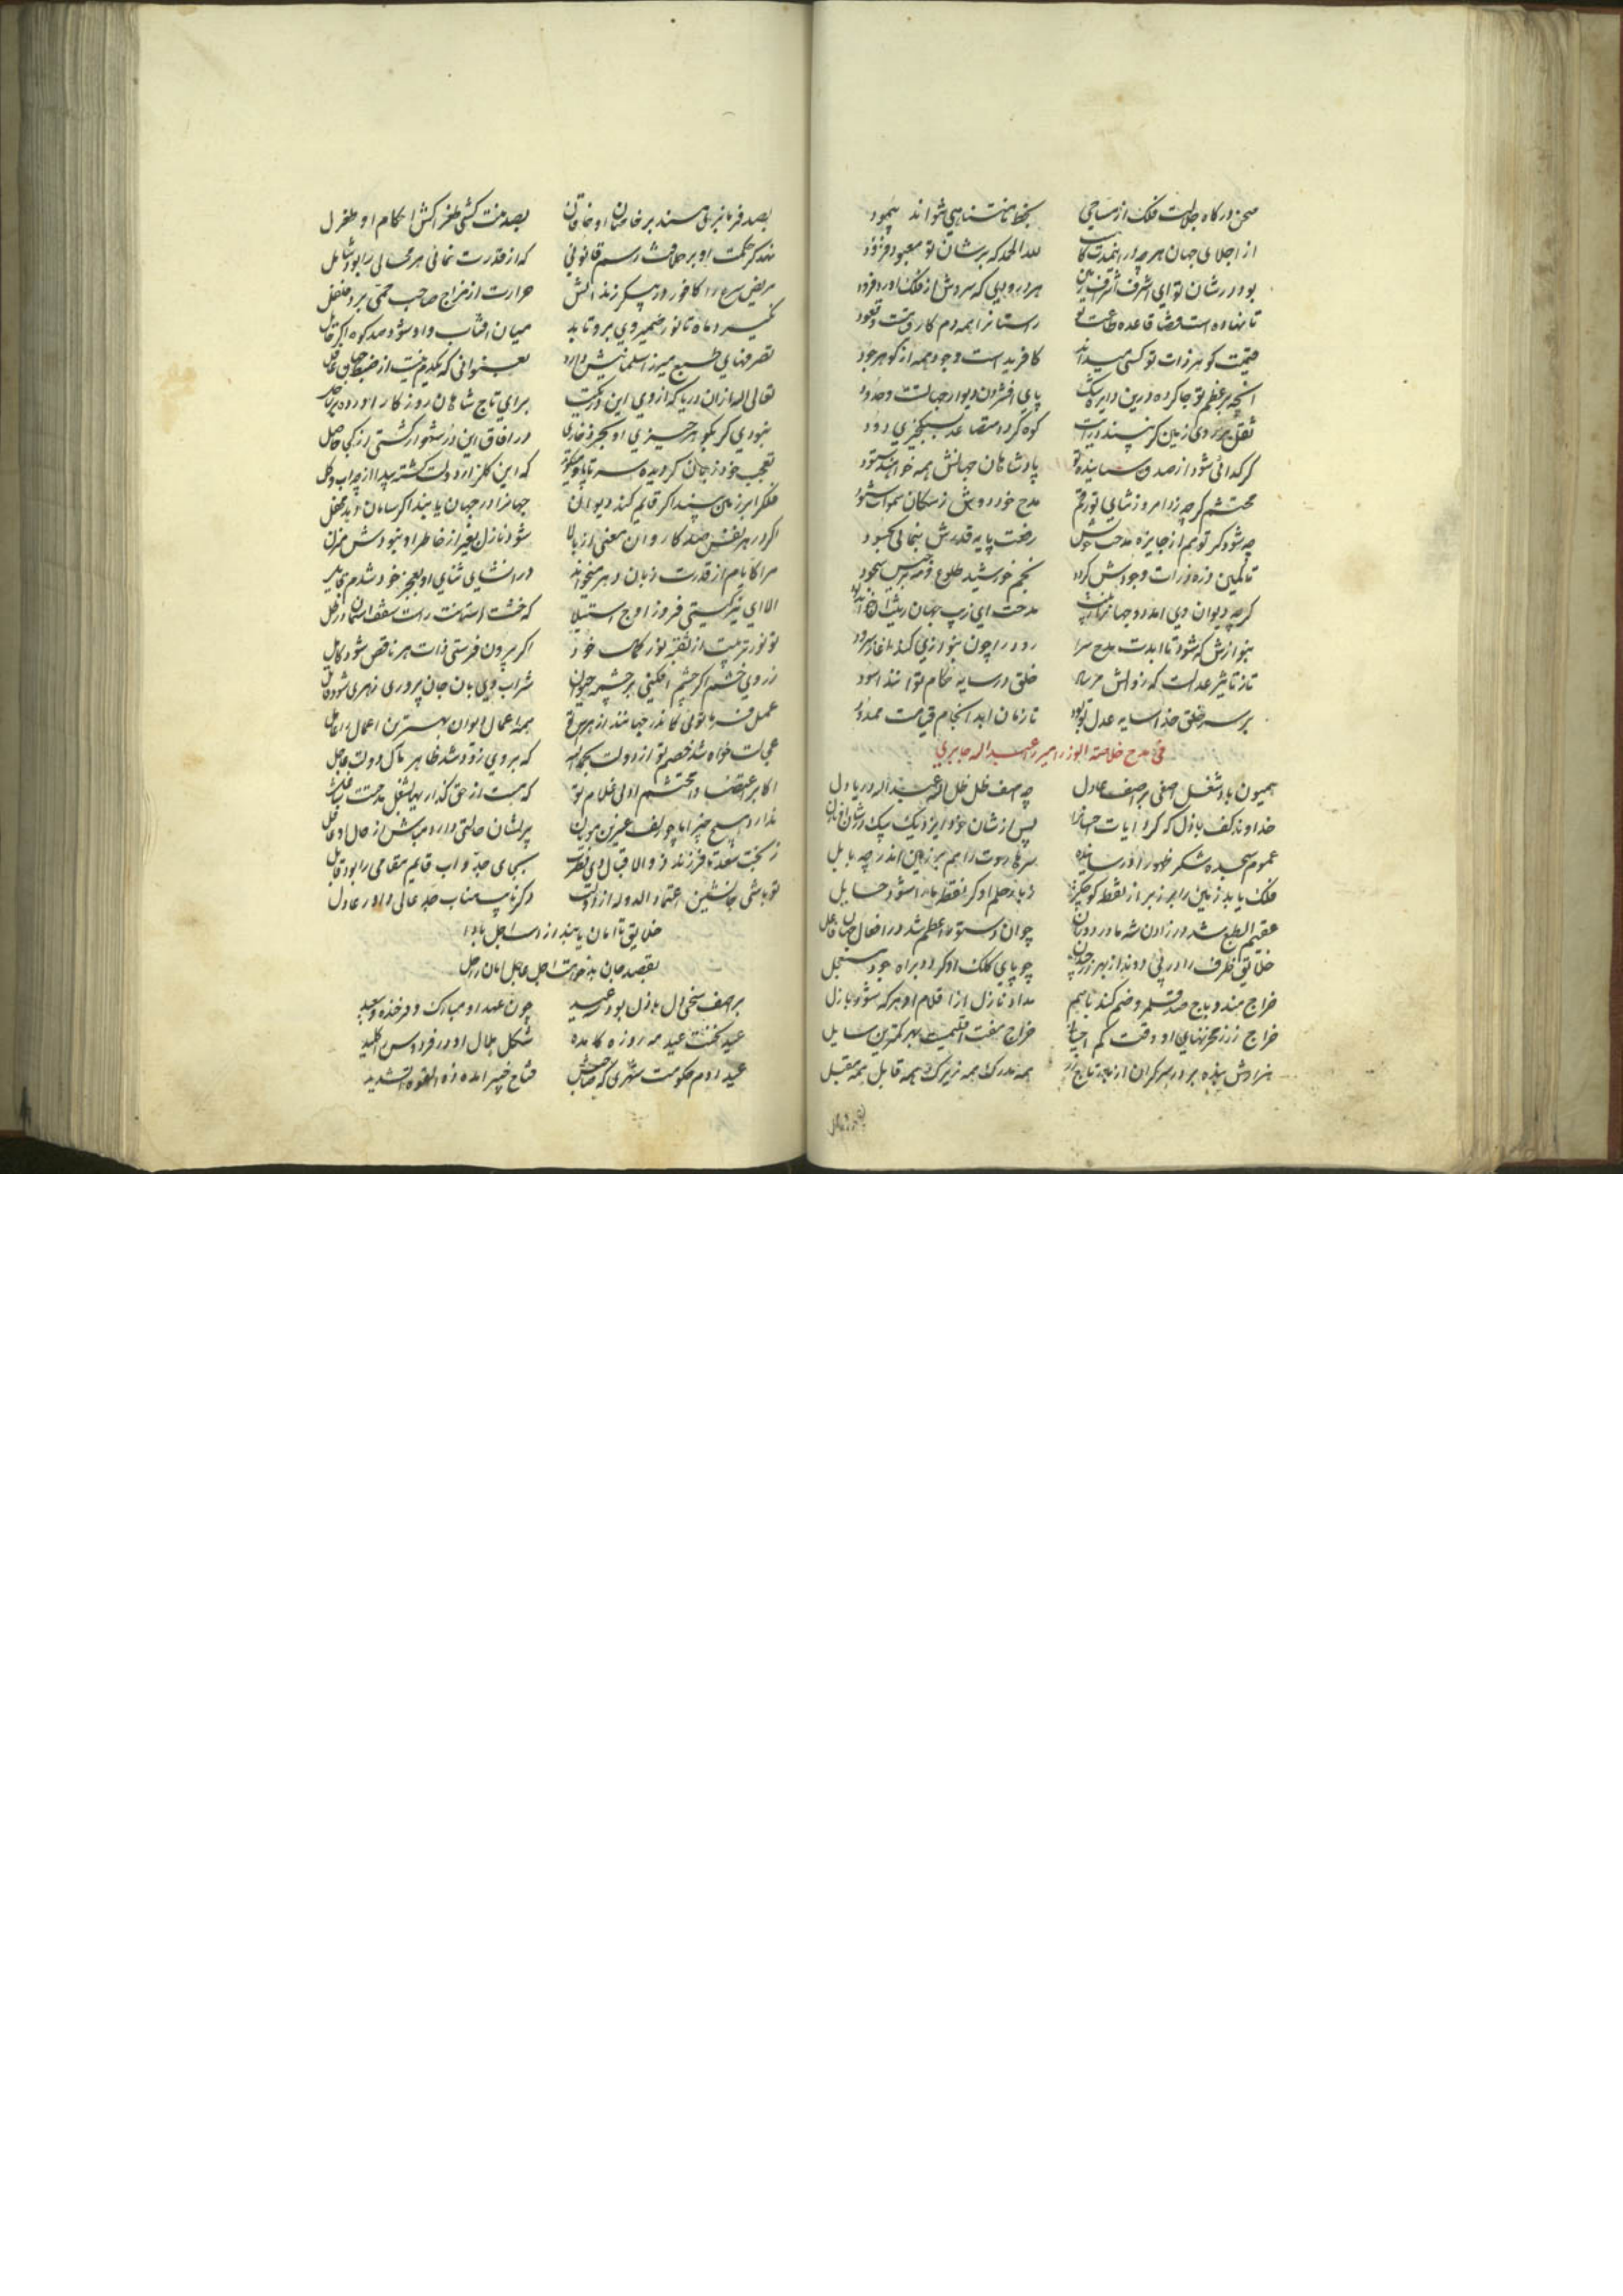 صحن درگاه جلالت فلک از مساحی بخط نامتناهی نتواند پیمود
از اجلای جهان هرچه در لله الحمد که بر شان تو معبود فزود
بود در شان تو ای اشرف هر درودی که سروش از فلک آورد فرود
تا نهاده است قضا قاعده طاعت تو راستانرا همه دم کار قعود
قیمت گوهر ذات تو کسی میداند کافریده است وجود همه از گوهر جود
آنچه بر عظم تو جا کرده درین دایره تنگ پای افشردن دیوار جهاتست و حدود
ثقل بر روی زمین گر نپسندد رایت کوه گردد متصاعد بسبکخیزی دود
گر گدائی شود از صدق ستاینده تو پادشاهان جهانش همه خوانند ستود
محتشم گرچه زد امروز ثنایی تو رقم مدح خود دوش ز سکان سموات شنود
چه شود گر تو هم از جایزه مدحت خویش رخت پایه قدرش بنمائی کبود
تا کمین ذره ذرات وجودش گردد نجم خورشید طلوع
گرچه دیوان وی آمد مدحت ای زیب جهان
بنوازش که شود تا ابدت مدح سرا رود را چون بنوازی کند آغاز سرود
تا ز تاثیر عدالت که زوالش مرساد خلق در سایه حکام توانند آسود
بر سر خلق خدا سایه عدل تو بود تا زمان ابد انجام قیامت ممدود
فی مدح خلاصة الوزرا میرزا عبداله جابری
همیون باد شغل آصفی بر آصف عادل چه آصف ظل ظل الله عبداله دریا دل
خداوند کف باذل که کرد آیات احسانرا پس از شان خود ایزد یک بیک در شان او نازل
عموم سجده شکر ظهور را در سر هاروت را هم بر زمین اندر چه بابل
فلک یابد زمین را بر زبر از نقطه کوچکتر ز بار حلم او گر نقطه بارا شود حایل
عقیم الطبع شد در زادن شه مادر دوران چو آن دستور اعظم شد در افعال جهان فاعل
خلایق ظرف را در پی دوند از بهر زر چو پای کلک او گردد براه جود مستعجل
خراج هند و باج صد قلمرو ضم کند باهم مداد نازل از اقلام او هرکه شود باذل
خراج زر ز مخزنهای او وقت کم احسانی خراج هفت اقلیمست بهر کمترین سایل
هزارش بنده بر در سرگران از همه مدرک همه زیرک همه قابل همه مقبل
بصد فرمانبری هستند بر خاصان او خاقان بصد منت کشی طغراکش احکام او طغرل
نهد گر حکمت او بر خلافت رسم قانونی که از قدرت نمائی هر محالی را بود شامل
مریض سرد را کافور در پیکر زند آتش حرارت از مزاج صاحب حمی برد فلفل
نگیرد ماه تا نور ضمیر وی برو تابد میان آفتاب و او شود صد کوه اگر حایل
تصرفهای طبع میرزا سلمانیش دارد بعنوانی که یکدم نیست از ضبط جهان غافل
تعالی اله ازان دریا که از وی این در یکتا برای تاج شاهان روزگار آورده بر ساحل
نبودی گر نکو هر چیزی او بحر ذخاری در آفاق این در شهوار گشتی از کجا حاصل
تعجب خود ز جان گردیده سر تا پا و میگوید که این گلزار دولت گشته پیدا از چه آب و گل
فلکرا بر زمین پسندد اگر قایم کند دیوان جهانرا در جهان یابند اگر سامان دهد محفل
اگر در هر نفس صد کاروان معنی از بالا شود نازل بغیر از خاطر او نبودش منزل
مرا کایام از قدرت زبان دهر میخواند در انشای ثنای او بعجز خود شدم قایل
الا ای نیر گیتی فروز اوج استیلا که خشت آستانت راست سقف آسمان در ظل
تو نور تربیت از بقعه نور کمال خود اگر بیرون فرستی ذات هر ناقص شود کامل
ز روی خشم اگر چشم افکنی بر چشمه حیوان شراب وی بآن جان پروری زهری شود قاتل
عمل فرما توئی کاندر جهانند از همه عمال ایوان بهترین اعمال را عامل
عجالت خواه شد خصم تو از دولت بحمد اله که بر وی زود شد ظاهر مآل دولت عاجل
اکابر اعتضادا محتشم اولی غلام تو که هست از حق گذاریها بشغل مدحتت شاغل
ندارد هیچ چیز اما چو زلف عنبرین مویان پریشان حالتی دارد مباش از حال او غافل
ز بخت سعد تا فرزند والا قبال ذی فطرت بجای جد و اب قایم مقامی را بود قابل
تو باشی جانشین اعتماد الدوله از دولت دگر نایب مناب جد عالی داور عادل
خلایق تا امان یابند از داس اجل بادا
بقصد جان بدخواهت اجل عاجل امان راحل
بر آصف سخی دل باذل بود عید چون عهد او مبارک و فرخنده و سعید
عید نخست عید مه روزه کامده شکل هلال او در فردوس را کلید
عید دوم حکومت شهری که صاحبش فتاح خیبر آمده ذو القوة الشدید